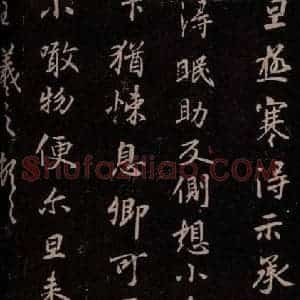 旦極寒得示承
得眠助反側想小
下猶悚息卿可
不噉物便尓旦来
王羲之頓
Shufaziliao.com